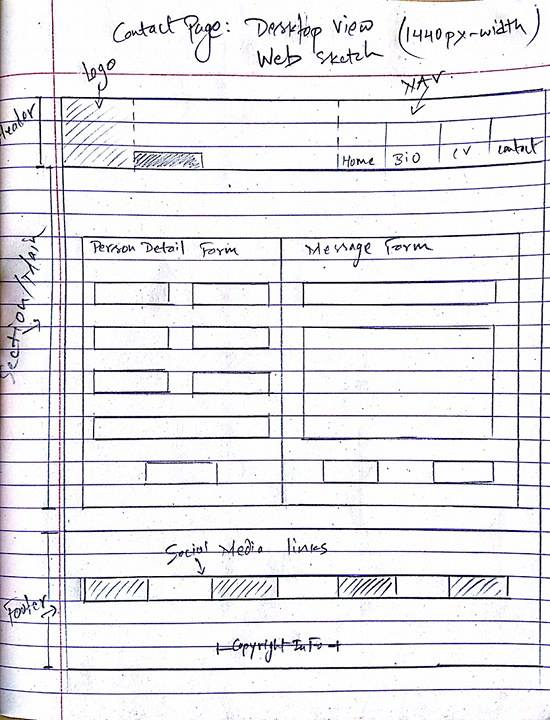 Contact Page: Desktop View (1440px-width)
Web sketch
Logo
NAV.
Header
Home BiO CV Contact
Section/Main
Person Detail Form
Message Form
Social Media links
Footer
Copyright InFo